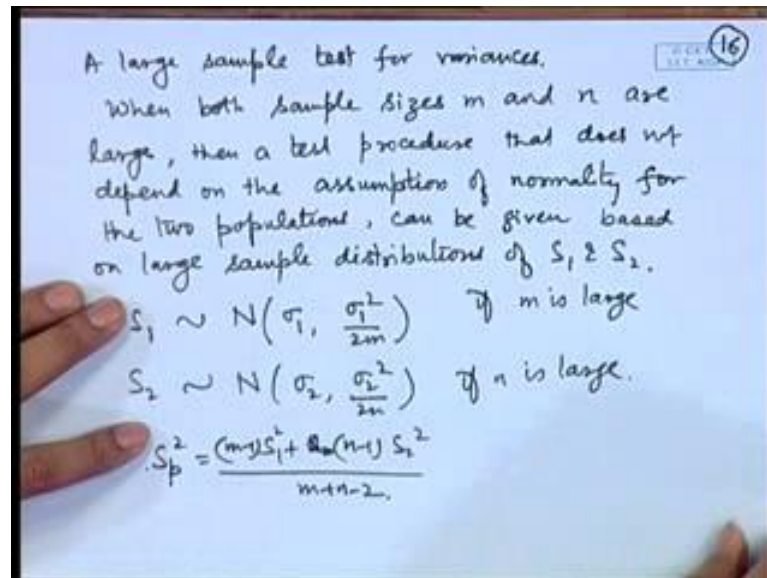 16
A large sample test for variances.
When both sample sizes m and n are
large, then a test procedure that does not
depend on the assumption of normality for
the two populations, can be given based
on large sample distributions of S₁ & S₂.
S₁ ~ N(σ₁, σ₁²/2m) if m is large
S₂ ~ N(σ₂, σ₂²/2n) if n is large.
Sp² = ((m-1)S₁² + (n-1)S₂²)/(m+n-2).